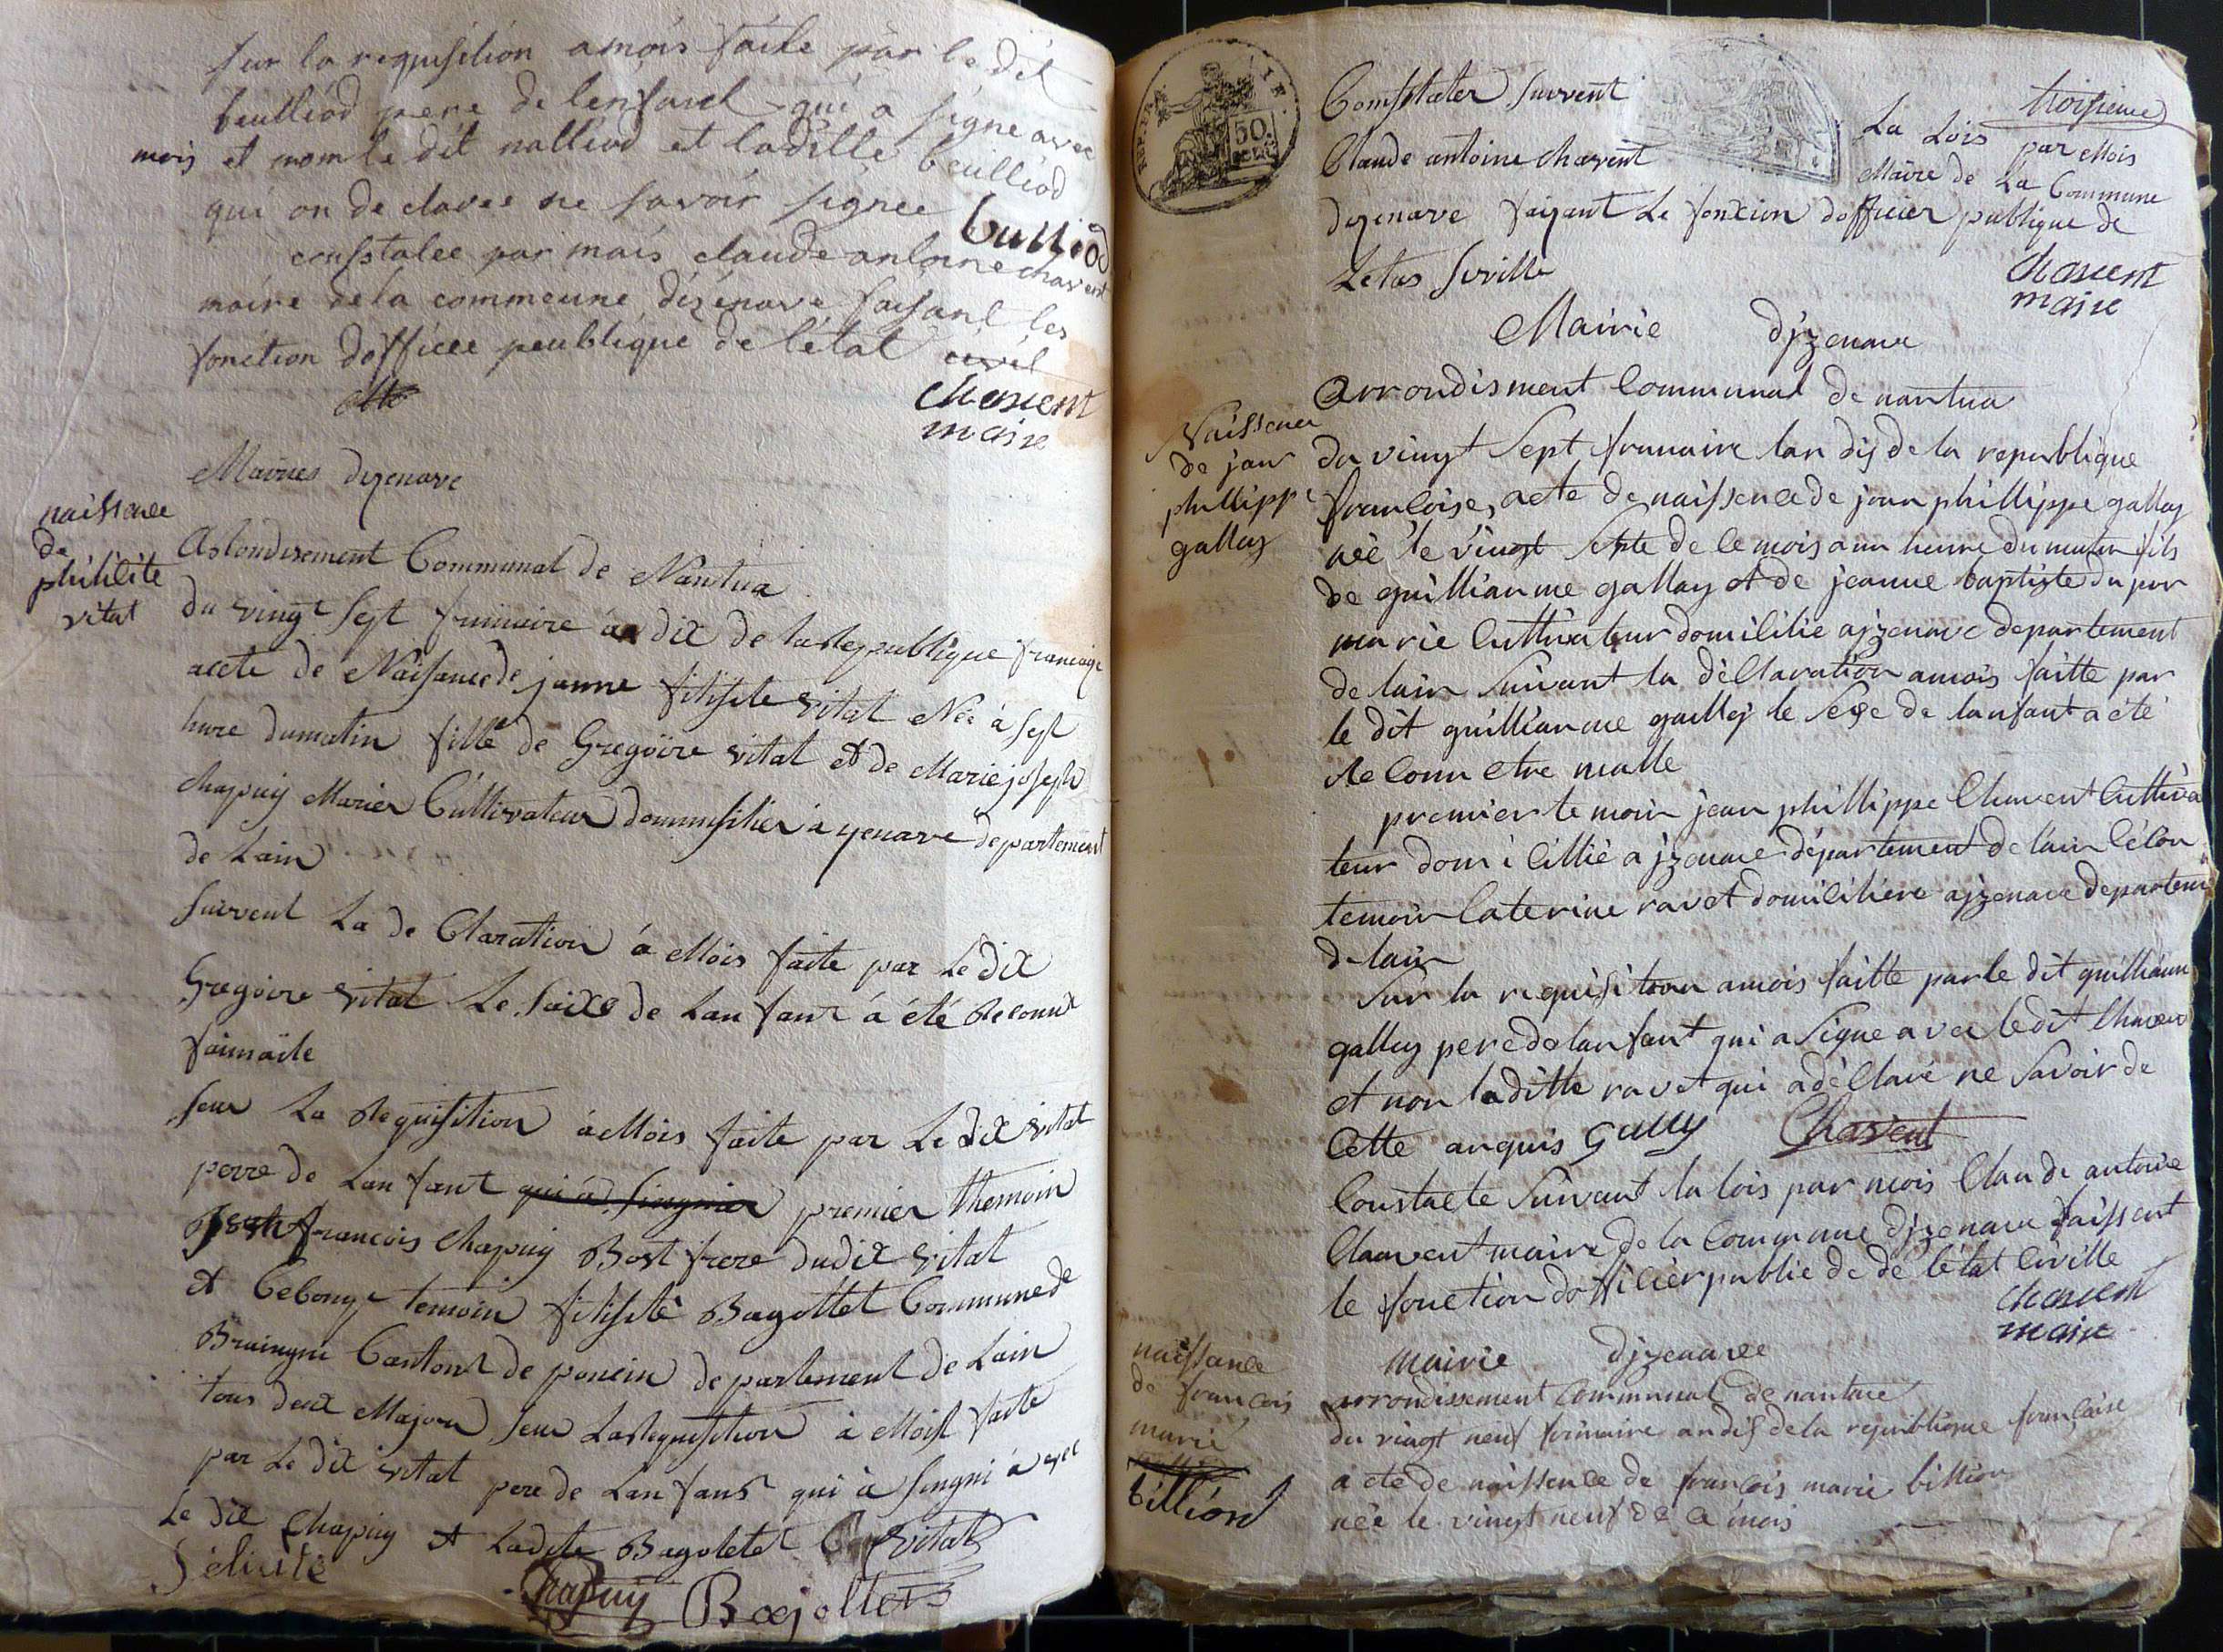 sur la requisition amois faite par le dit
beulliod pere de lenfant qui a signe avec
mois et nom le dit nalliod et laditte beulliod
qui on de claree ne savoir signee
bulliod
constatee par mais claude antoine chavent
maire de la commeune dizenave faisant les
fonction dofficee peublique de l'état civil
chavent
maire
Mairies dizenave
naissence
de
philicite
vitat
Arondisement Communal de Nantua
du vingt sept frimaire an dix de la Republique francaize
acete de Naisance de janne filisite vitat Née à sept
hure dumatin fille de Gregoire vitat et de Marie joseph
chapuy Marier Cultivateur dommisilier à yzenave departement
de Lain
suivent La de Claration à Mois faite par Le dix
Gregoire vitat Le saixe de Lan fant à été Reconnut
faimaile
seur La Requisition à Mois faite par Le dix vitat
perre de Lan fant qui à singnier premier themoin
francois Chapuy Bost frere dudix vitat
et Cebongt temoin filisite Bagottet Commune de
Braingne Cantont de poncin departement de Lain
tous deux Majour seur LaRequisition à Mois faite
par Le dix vitat pere de Lan fant qui à singni à vec
Le dix Chapuy et Ladite Bagotetet vitat
Félicité
Chapuy Bajollet
Constater suivent
La Lois par Mois
troisieme
Claude antoine chavent
Maire de La Commune
dizenave faizant Le fonxion dofficier publique de
Letas siville
chavent
maire
Mairie dizenave
arrondisment Communal de nantua
Naissence
de jean
phillippe
gallay
du vingt sept frimaire lan dis de la republique
francoise, acte de naissence de jean phillippe gallay
née le vingt septe de ce mois a un heure du matin fils
de guilliaume gallay et de jeanne baptiste du por
marie cultivateur domicilie a jzenave departement
de lain suivant la déclaration amois faitte par
le dit guilliaume galley le sexe de lanfant a été
reconu etre malle
premier temoin jean phillippe Chavent Cultiva
teur domicillié a jzenave département de lain Cécon
temoin Caterine ravet domiciliere ajzenave departem
d lain
sur la requisition amois faitte par le dit guilliaum
galley pere de lanfant qui a signe avec le dit Chavent
et non laditte ravet qui a déclaré ne savoir de
Cette anquis Gally Chavent
Constacte suivant la lois par mois Claude antoine
Chavent maire de la Commune djzenave faissent
le fonction dofficier publie de de létat Civille
chavent
maire
mairie djzenavee
naissance
de francois
marie
billion
arrondissement Communal de nantuae
du vingt neuf frimaire an dis de la republique francaise
acte de naissence de francois marie billion
née le vingt neuf de ce mois